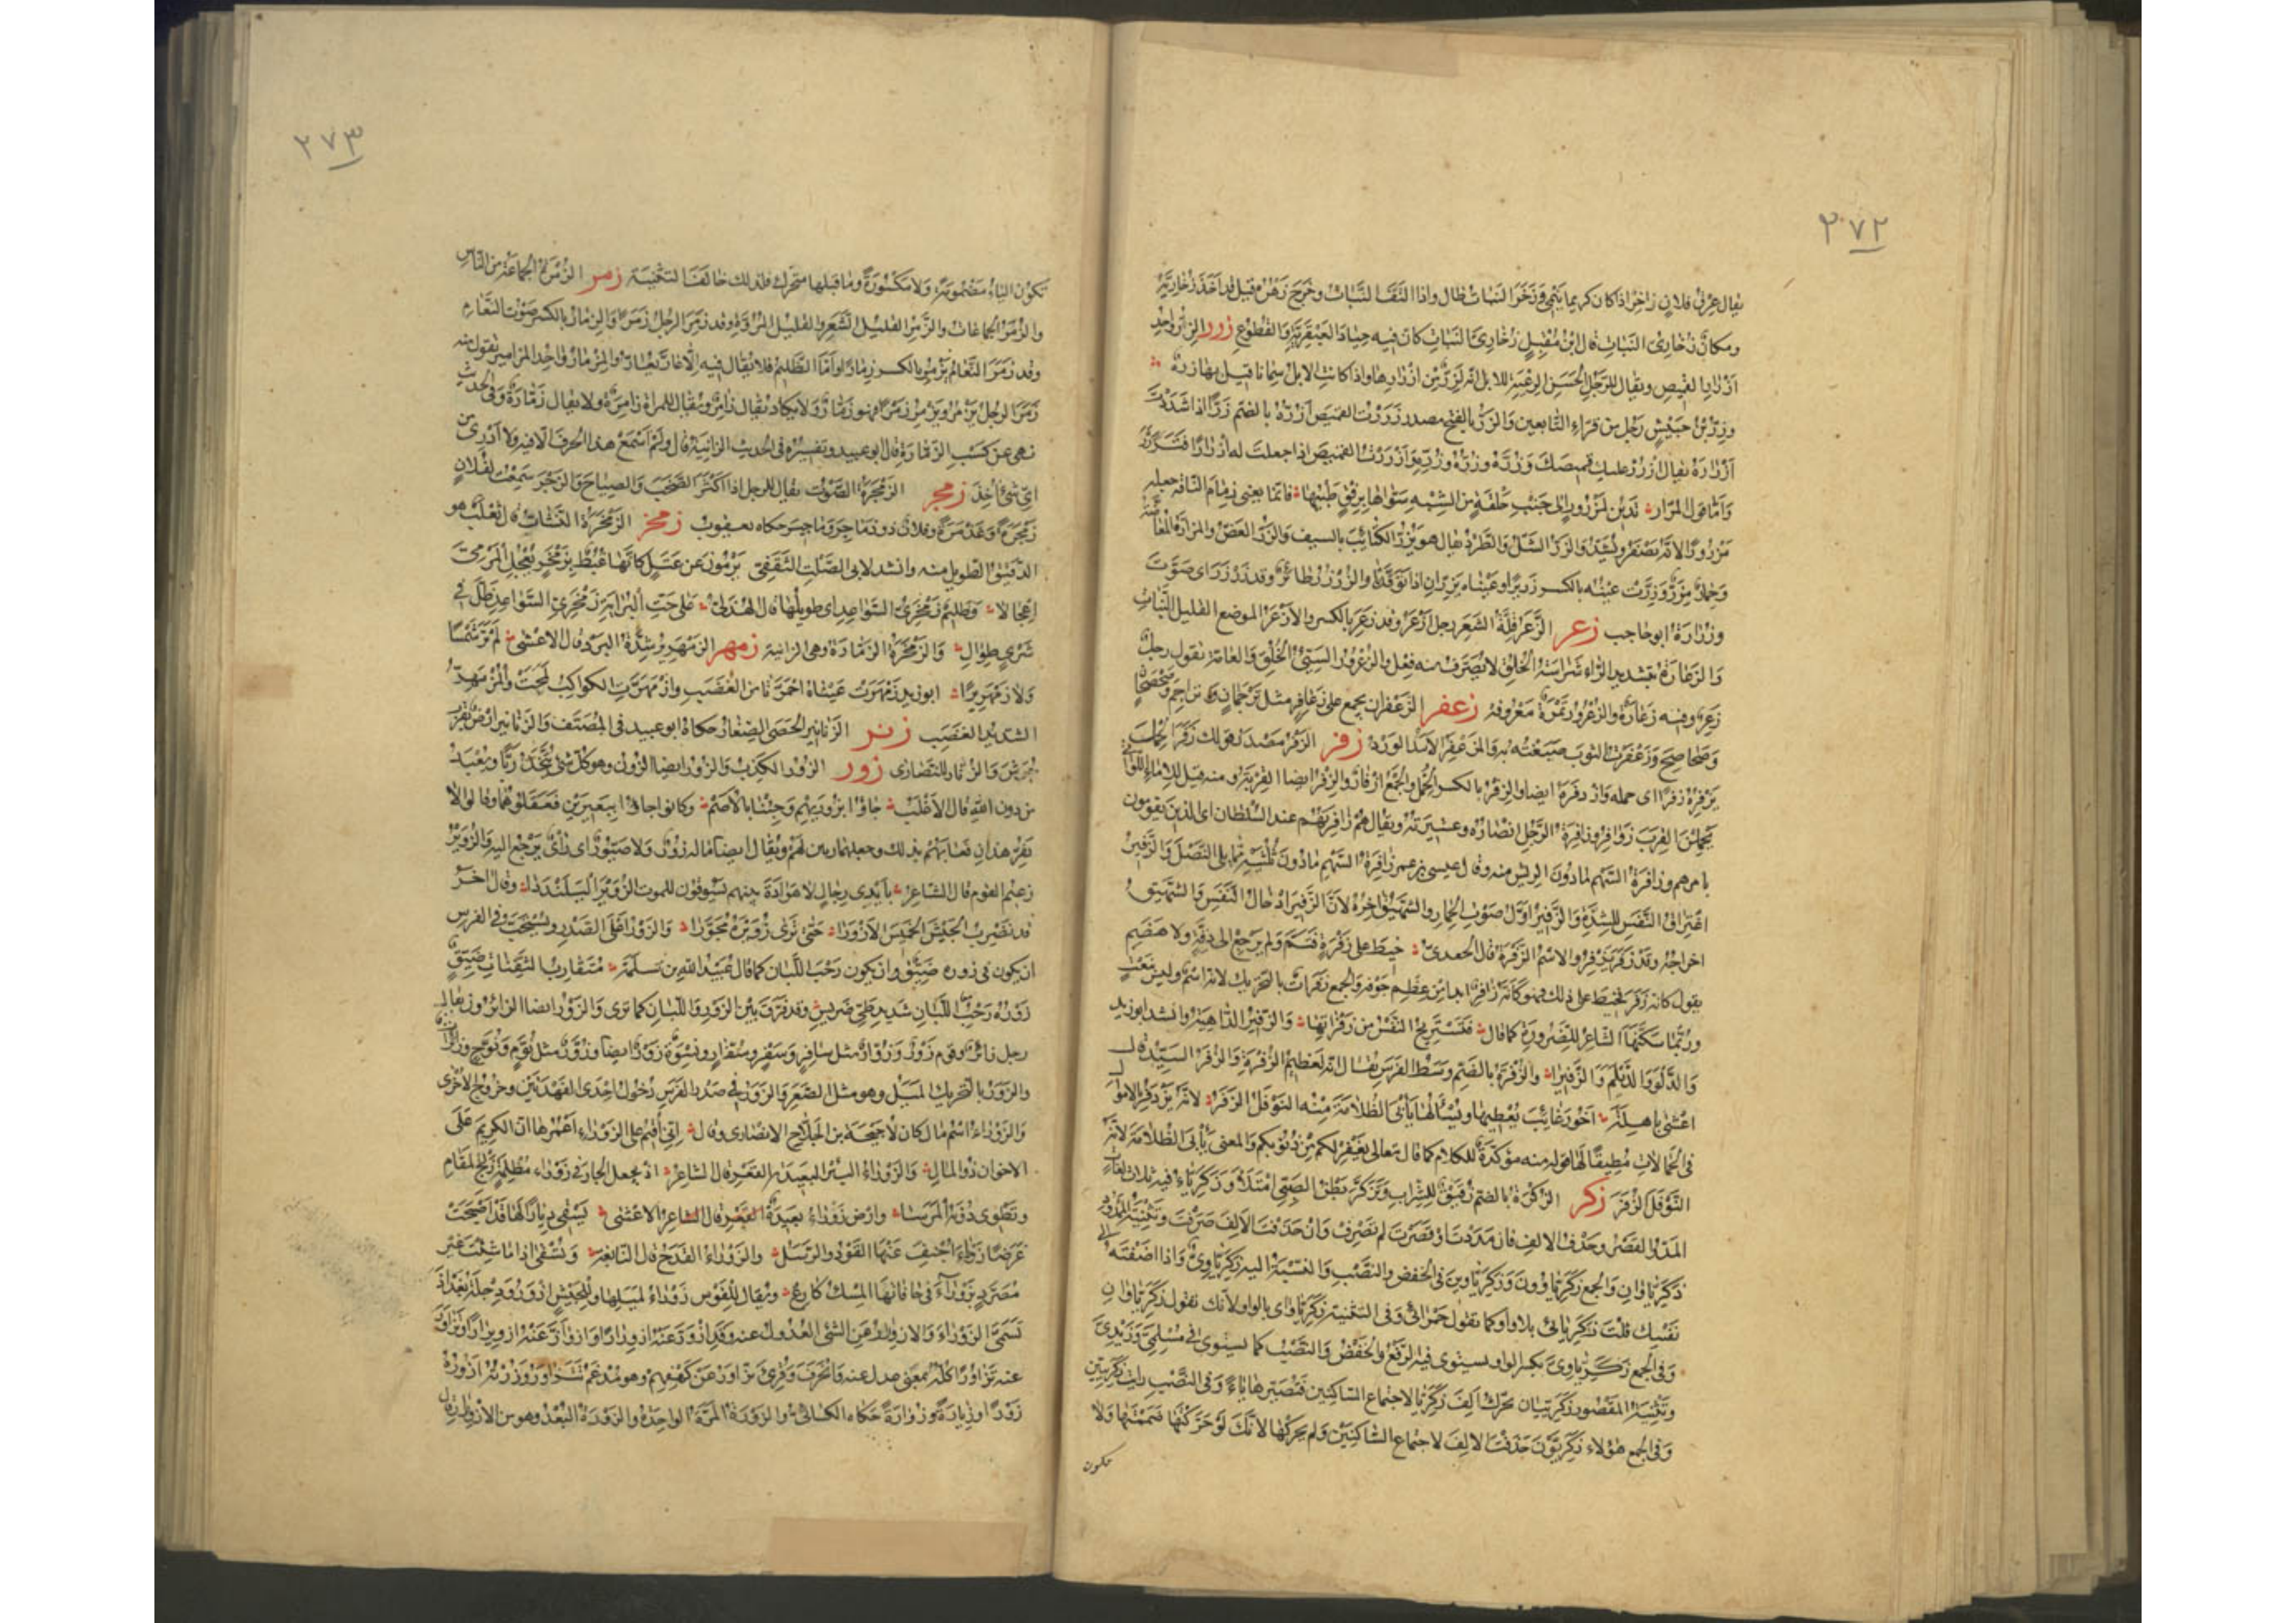 ٢٧٢
يقال عرق فلان زاخر اذا كان كريما ينمى وزخر النبات طال واذا التف النبات وخرج زهره قيل قد اخذ زخاريه
ومكان زخارى النبات قال ابن مقبل زخارى النبات كان فيه جياد العبقرية والقطوع زرر الزر واحد
ازرار القميص ويقال للرجل الحسن الرعية للابل انه لزر من ازرارها واذا كانت الابل سمانا قيل بها زرة
وزر بن حبيش رجل من قراء التابعين والزر بالفتح مصدر زررت القميص ازره بالضم زرا اذا شددت
ازراره يقال ازرر عليك قميصك وزره وزره وزره وازررت القميص اذا جعلت له ازرارا فتزرر
واما قول المرار تدين لمزرور الى جنب حلقة من الشبه سواها برفق طبيبها فانما يعنى زمام الناقة جعله
مزرورا لانه يضفر ويشد والزر الشل والطرد يقال هو يزر الكتائب بالسيف والزر العض والمزارة المعاضة
وحمار مزر وزرت عينه بالكسر زريرا وعيناه تزران اذا توقدتا والزرزر طائر وقد زرزر اى صوت
وزرارة ابو حاجب زعر الزعر قلة الشعر رجل ازعر وقد زعر بالكسر والازعر الموضع القليل النبات
والزعارة بتشديد الراء شراسة الخلق لا يصرف منه فعل والزعرور السيئ الخلق والعامة تقول رجل
زعر وفيه زعارة والزعرور ثمرة معروفة زعفر الزعفران يجمع على زعافر مثل ترجمان وتراجم وصحصحان
وصحاصح وزعفرت الثوب صبغته به والمزعفر الاسد الورد زفر الزفر مصدر قولك زفر الحمل
يزفره زفرا اى حمله وازدفره ايضا والزفر بالكسر الحمل والجمع ازفار والزفر ايضا القربة ومنه قيل للاماء اللواتى
يحملن القرب زوافر وزافرة الرجل انصاره وعشيرته ويقال هم زافرتهم عند السلطان اى الذين يقومون
بامرهم وزافرة السهم لما دون الريش منه وقال عيسى بن عمر زافرة السهم ما دون ثلثيه مما يلى النصل والزفير
اغتراق النفس للشدة والزفير اول صوت الحمار والشهيق اخره لان الزفير ادخال النفس والشهيق
اخراجه وقد زفر يزفر والاسم الزفرة قال الجعدى خيط على زفرة فتم ولم يرجع الى دقة ولا هضم
يقول كانه زفر فخيط على ذلك فهو كانه زافر ابدا من عظم جوفه والجمع زفرات بالتحريك لانه اسم وليس بنعت
وربما سكنها الشاعر للضرورة كما قال فتستريح النفس من زفراتها والزفير الداهية وانشد ابو زيد
والدلو والديلم والزفيرا والزفرة بالضم وسط الفرس يقال انه لعظيم الزفرة والزفر السيد قال
اعشى باهلة اخو رغائب يعطيها ويسألها يأبى الظلامة منه النوفل الزفر لانه يزدفر الاموال
فى الحمالات مطيقا لها وقوله منه مؤكدة للكلام كما قال تعالى يغفر لكم من ذنوبكم والمعنى يأبى الظلامة لانه
النوفل الزفر زكر الزكرة بالضم زقيق للشراب وتزكر بطن الصبى امتلأ وزكرياء فيه ثلاث لغات
المد والقصر وحذف الالف فان مددت او قصرت لم تصرف وان حذفت الالف صرفت وتثنية الممدود
زكرياوان والجمع زكرياوون وزكرياوين فى الخفض والنصب والنسبة اليه زكرياوى واذا اضفته الى
نفسك قلت زكريائى بلا واو كما تقول حمرائى وفى التثنية زكرياواى بالواو لانك تقول زكرياوان
وفى الجمع زكرياوى بكسر الواو يستوى فيه الرفع والخفض والنصب كما يستوى فى مسلمى وزيدى
وتثنية المقصور زكرييان تحرك الف زكريا لاجتماع الساكنين فتصيرها ياء وفى النصب رايت زكريين
وفى الجمع هؤلاء زكريون حذفت الالف لاجتماع الساكنين ولم تحركها لانك لو حركتها ضممتها ولا
تكون
٢٧٣
تكون الياء مضمومة ولا مكسورة وما قبلها متحرك فلذلك خالفت التثنية زمر الزمرة الجماعة من الناس
والزمر الجماعات والزمر القليل الشعر والقليل المروة وقد زمر الرجل زمرا والزمار بالكسر صوت النعام
وقد زمر النعام يزمر بالكسر زمارا واما الظليم فلا يقال فيه الا عار يعار والمزمار واحد المزامير تقول منه
زمر الرجل يزمر ويزمر زمرا فهو زمار ولا يكاد يقال زامر ويقال للمراة زامرة ولا يقال زمارة وفى الحديث
نهى عن كسب الزمارة قال ابو عبيد وتفسيره فى الحديث الزانية قال ولم اسمع هذا الحرف الا فيه ولا ادرى من
اى شئ اخذ زمجر الزمجرة الصوت يقال للرجل اذا اكثر الصخب والصياح والزجر سمعت لفلان
زمجرة وغذمرة وفلان ذو زماجر وزماجير حكاه يعقوب زمخر الزمخرة النشاب قال ثعلب هو
الدقيق الطويل منه وانشد لابى الصلت الثقفى يرمون عن عتل كانها غبط بزمخر يعجل المرمى
اعجالا وظليم زمخرى السواعد اى طويلها قال الهذلى على حت البراية زمخرى السواعد ظل فى
شرى طوال والزمخرة الزمارة وهى الزانية زمهر الزمهرير شدة البرد قال الاعشى لم تر شمسا
ولا زمهريرا ابو زيد زمهرت عيناه احمرتا من الغضب وازمهرت الكواكب لمحت والمزمهر
الشديد الغضب زنر الزنانير الحصى الصغار حكاه ابو عبيد فى المصنف والزنانير ارض بقرب
جرش والزنار للنصارى زور الزور الكذب والزور ايضا الزون وهو كل شئ يتخذ ربا ويعبد
من دون الله قال الاغلب جاؤا بزوريهم وجئنا بالاصم وكانوا جاؤا ببعيرين فعقلوهما وقالوا لا
نفر حتى يفر هذان فعابهم بذلك وجعلهما ربين لهم ويقال ايضا ما له زور ولا صيور اى رأى يرجع اليه والزوير
زعيم القوم قال الشاعر بايدى رجال لا هوادة بينهم يسوقون للموت الزوير اليلنددا وقال اخر
قد نضرب الجيش الخميس الازورا حتى ترى زويره مجورا والزور اعلى الصدر ويستحب فى الفرس
ان يكون فى زوره ضيق وان يكون رحب اللبان كما قال عبد الله بن سلمة متقارب الثفنات ضيق
زوره رحب اللبان شديد طى ضريس وقد فرق بين الزور واللبان كما ترى والزور ايضا الزائرون يقال
رجل زائر وقوم زور وزوار مثل سافر وسفر وسفار ونسوة زور ايضا وزور مثل نوم ونوح وزائرات
والزور بالتحريك الميل وهو مثل الصعر والزور فى صدر الفرس دخول احدى الفهدتين وخروج الاخرى
والزوراء اسم مال كان لاحيحة بن الجلاح الانصارى وقال انى اقيم على الزوراء اعمرها ان الكريم على
الاخوان ذو المال والزوراء البئر البعيدة القعر قال الشاعر اذ تجعل الجار فى زوراء مظلمة زلج المقام
وتطوى دونه المرسا وارض زوراء بعيدة القعر قال الشاعر الاعشى يسقى ديارا لها قد اصبحت
غرضا زوراء اجنف عنها القود والرسل والزوراء القدح قال النابغة وتسقى اذا ما شئت غير
مصرد بزوراء فى حافاتها المسك كارع ويقال للقوس زوراء لميلها وللجيش ازور ودجلة بغداد
تسمى الزوراء والازورار عن الشئ العدول عنه وقد ازور عنه ازورارا وازوار عنه ازويرارا وتزاور
عنه تزاورا كله بمعنى عدل عنه وانحرف وقرئ تزاور عن كهفهم وهو مدغم تتزاور وزرته ازوره
زورا وزيارة وزوارة حكاه الكسائى والزورة المرة الواحدة والزورة البعد وهو من الازورار قال